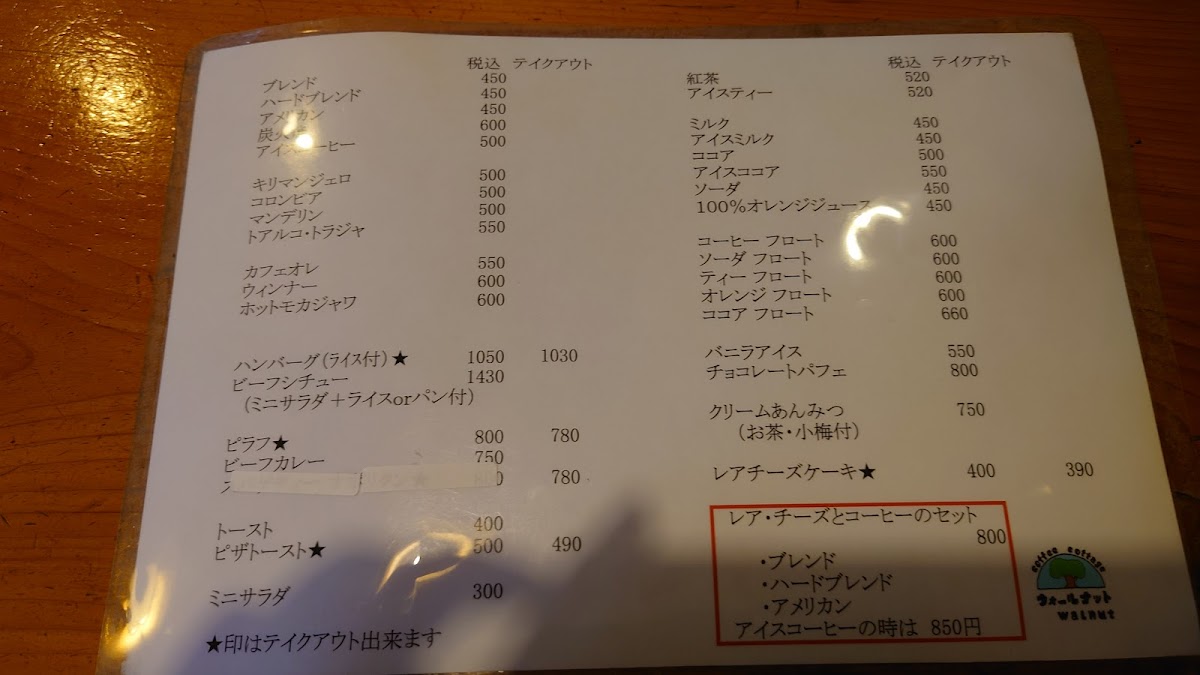 税込 テイクアウト
ブレンド 450
ハードブレンド 450
アメリカン 450
炭火 600
アイスコーヒー 500
キリマンジェロ 500
コロンビア 500
マンデリン 500
トアルコ・トラジャ 550
カフェオレ 550
ウィンナー 600
ホットモカジャワ 600
ハンバーグ(ライス付)★ 1050 1030
ビーフシチュー 1430
(ミニサラダ+ライスorパン付)
ピラフ★ 800 780
ビーフカレー 750
780
トースト 400
ピザトースト★ 500 490
ミニサラダ 300
★印はテイクアウト出来ます
税込 テイクアウト
紅茶 520
アイスティー 520
ミルク 450
アイスミルク 450
ココア 500
アイスココア 550
ソーダ 450
100%オレンジジュース 450
コーヒー フロート 600
ソーダ フロート 600
ティー フロート 600
オレンジ フロート 600
ココア フロート 660
バニラアイス 550
チョコレートパフェ 800
クリームあんみつ 750
(お茶・小梅付)
レアチーズケーキ★ 400 390
レア・チーズとコーヒーのセット
800
・ブレンド
・ハードブレンド
・アメリカン
アイスコーヒーの時は 850円
coffee cottage
ウォールナット
WALNUT